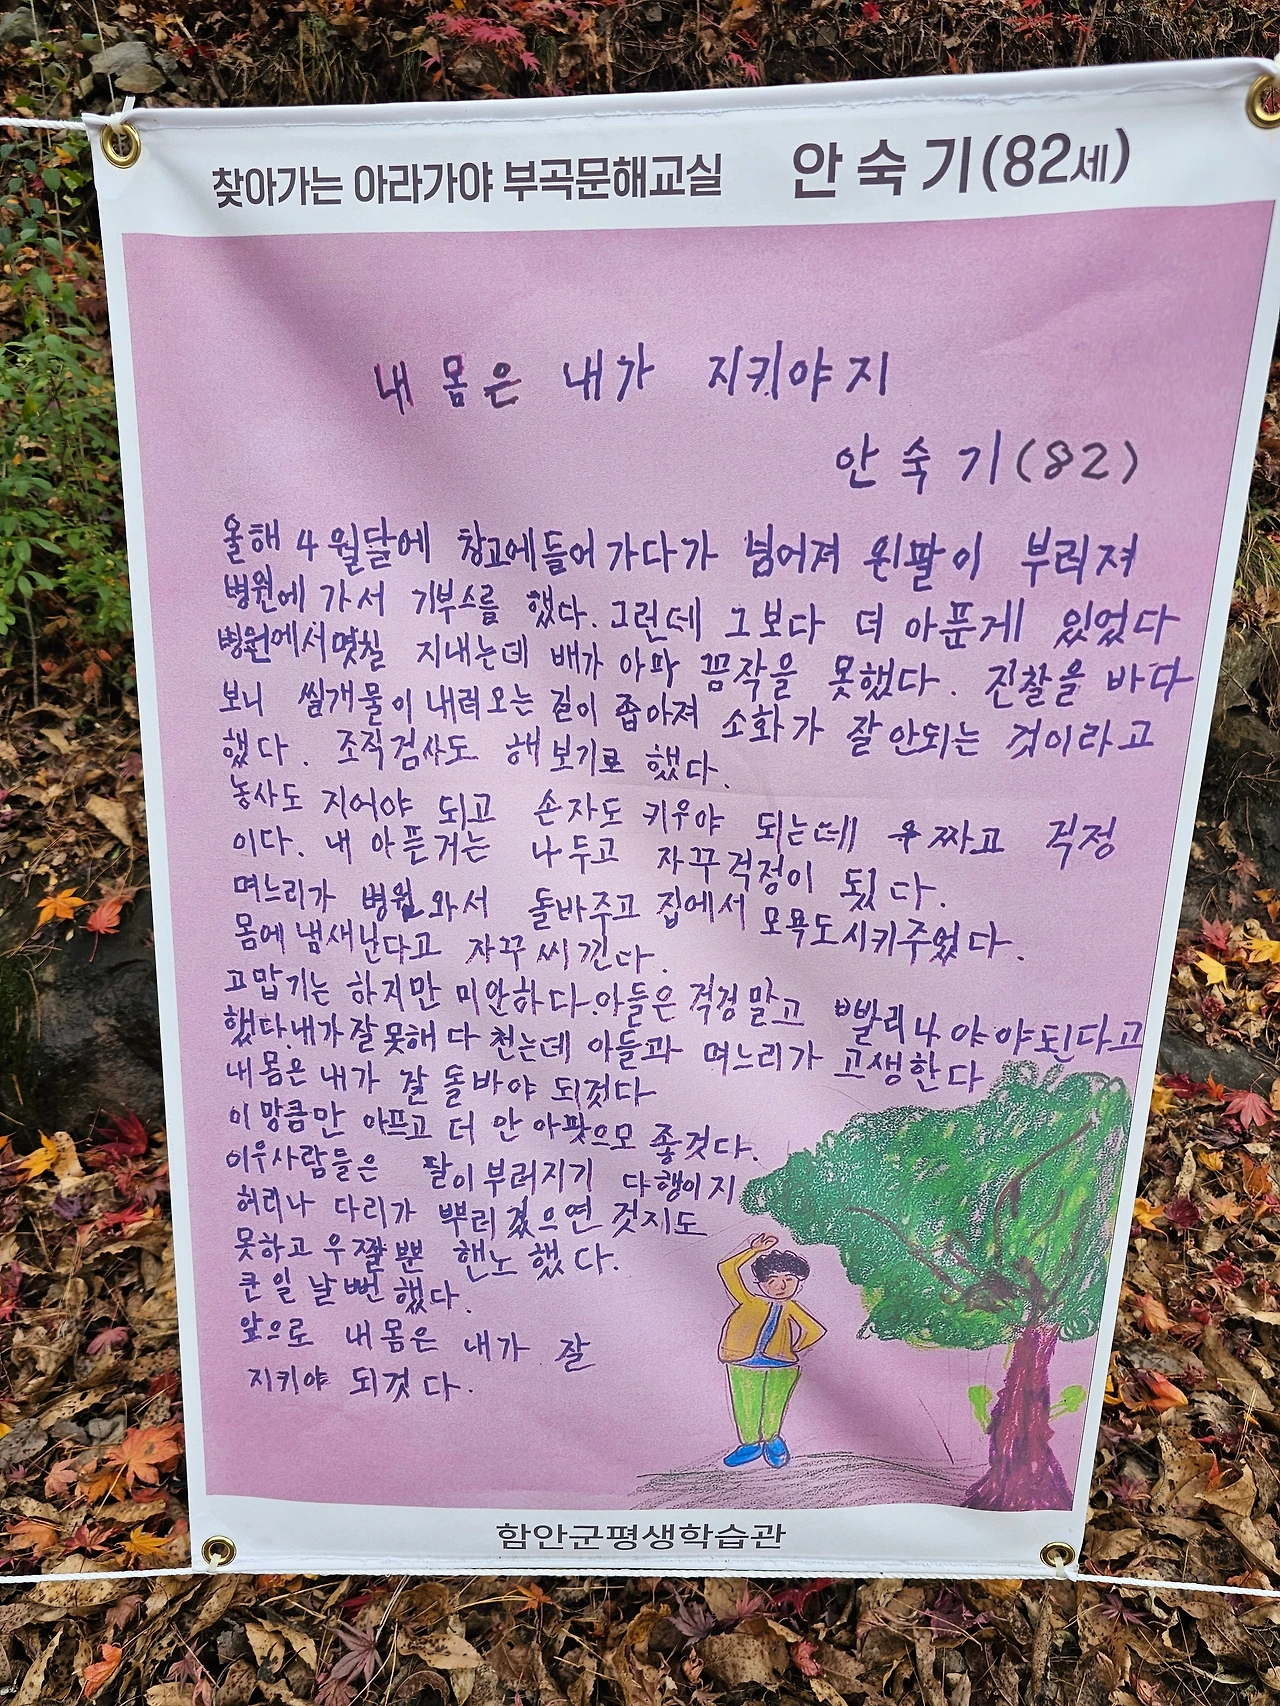 찾아가는 아라가야 부곡문해교실 안숙기(82세)
내 몸은 내가 지키야지
안숙기(82)
올해 4월달에 창고에들어가다가 넘어져 왼팔이 부러져
병원에 가서 기부스를 했다. 그런데 그보다 더 아푼게 있었다
병원에서몇칠 지내는데 배가 아파 끔작을 못했다. 진찰을 바다
보니 씰개물이 내려오는 길이 좁아져 소화가 잘안되는 것이라고
했다. 조직검사도 해보기로 했다.
농사도 지어야 되고 손자도 키우야 되는데 우짜고 걱정
이다. 내 아픈거는 나두고 자꾸걱정이 됬다.
며느리가 병원와서 돌바주고 집에서 모욕도시키주었다.
몸에 냄새난다고 자꾸 씨낀다.
고맙기는 하지만 미안하다.아들은 걱정말고 빨리나야야된다고
했다.내가잘못해 다천는데 아들과 며느리가 고생한다
내몸은 내가 잘 돌바야 되겄다
이망큼만 아프고 더 안 아팟으모 좋겄다.
이우사람들은 팔이부러지기 다행이지
허리나 다리가 뿌러졌으면 것지도
못하고 우짤뿐 핸노했다.
큰일 날뻔했다.
앞으로 내몸은 내가 잘
지키야 되겄다.
함안군평생학습관